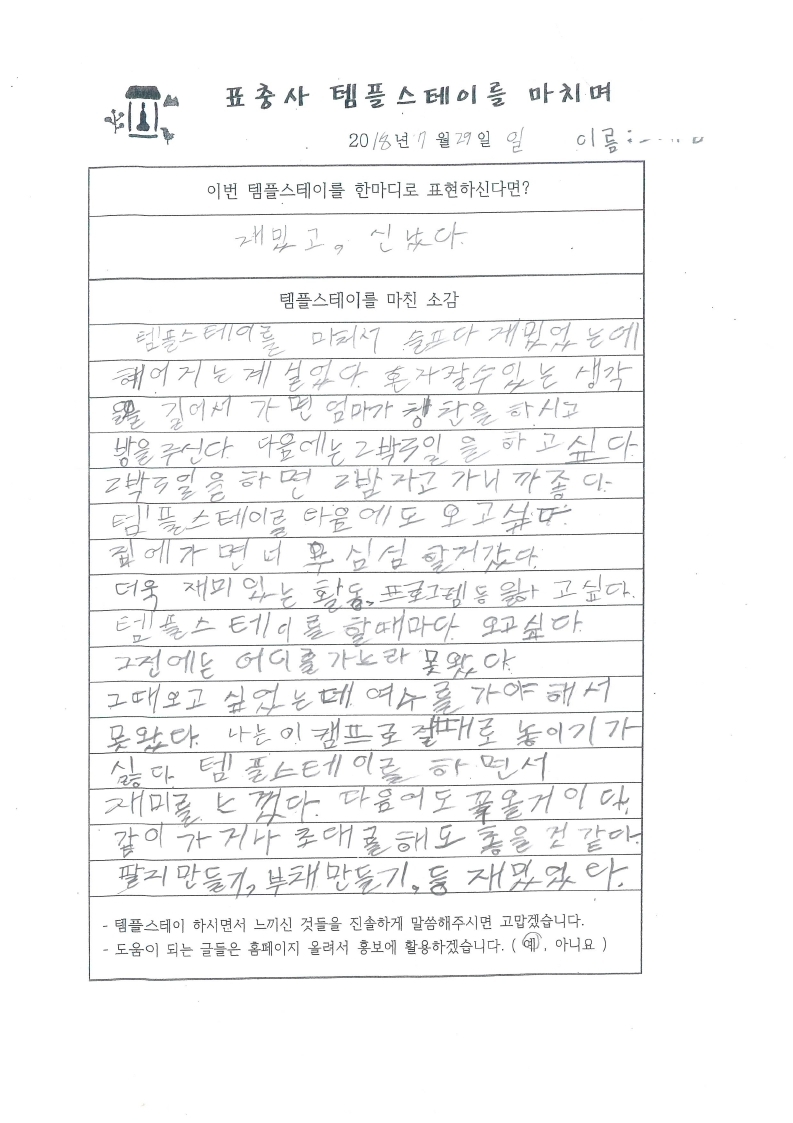 표충사 템플스테이를 마치며
2018년 7월 29일 일 이름:
이번 템플스테이를 한마디로 표현하신다면?
재밌고, 신났다.
템플스테이를 마친 소감
템플스테이를 마처서 슬프다 재밌었는데
헤어지는게 싫었다. 혼자잘수있는 생각
길어서 가면 엄마가 칭찬을 하시고
방을주신다. 다음에는 2박3일을 하고싶다.
2박3일을 하면 2밤자고 가니까좋다.
템플스테이를 다음에도 오고싶다.
집에가면 너무 심심할거갔다.
더욱 재미있는 활동, 프로그램등을하고싶다.
템플스테이를 할때마다 오고싶다.
그전에는 어디를가느라 못왔다.
그때오고 싶었는데 여수를 가야해서
못왔다. 나는이 캠프로 절때로 놓이기가
싫다. 템플스테이를 하면서
재미를 느꼈다. 다음에도 꼭올거이다.
같이 가거나 초대를해도 좋을 것 같다.
팔지만들기, 부채만들기, 등 재밌었다.
- 템플스테이 하시면서 느끼신 것들을 진솔하게 말씀해주시면 고맙겠습니다.
- 도움이 되는 글들은 홈페이지 올려서 홍보에 활용하겠습니다. ( 예 , 아니요 )